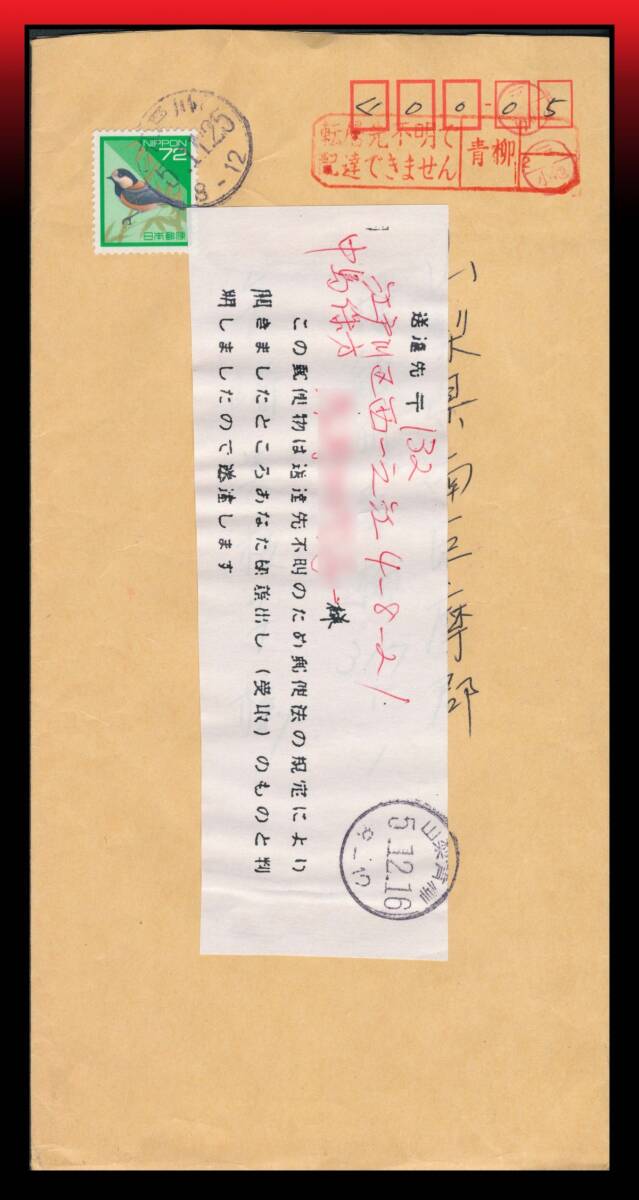 400-05
転居先不明で
配達できません
青柳
11.25
8-12
NIPPON
72
日本郵便
梨県南巨摩郡
送達先 〒132
江戸川区西一之江4-8-21
中島
様
この郵便物は送達先不明のため郵便法の規定により
開きましたところあなた様差出し(受取)のものと判
明しましたので送達します
山梨青柳
5.12.16
8-12